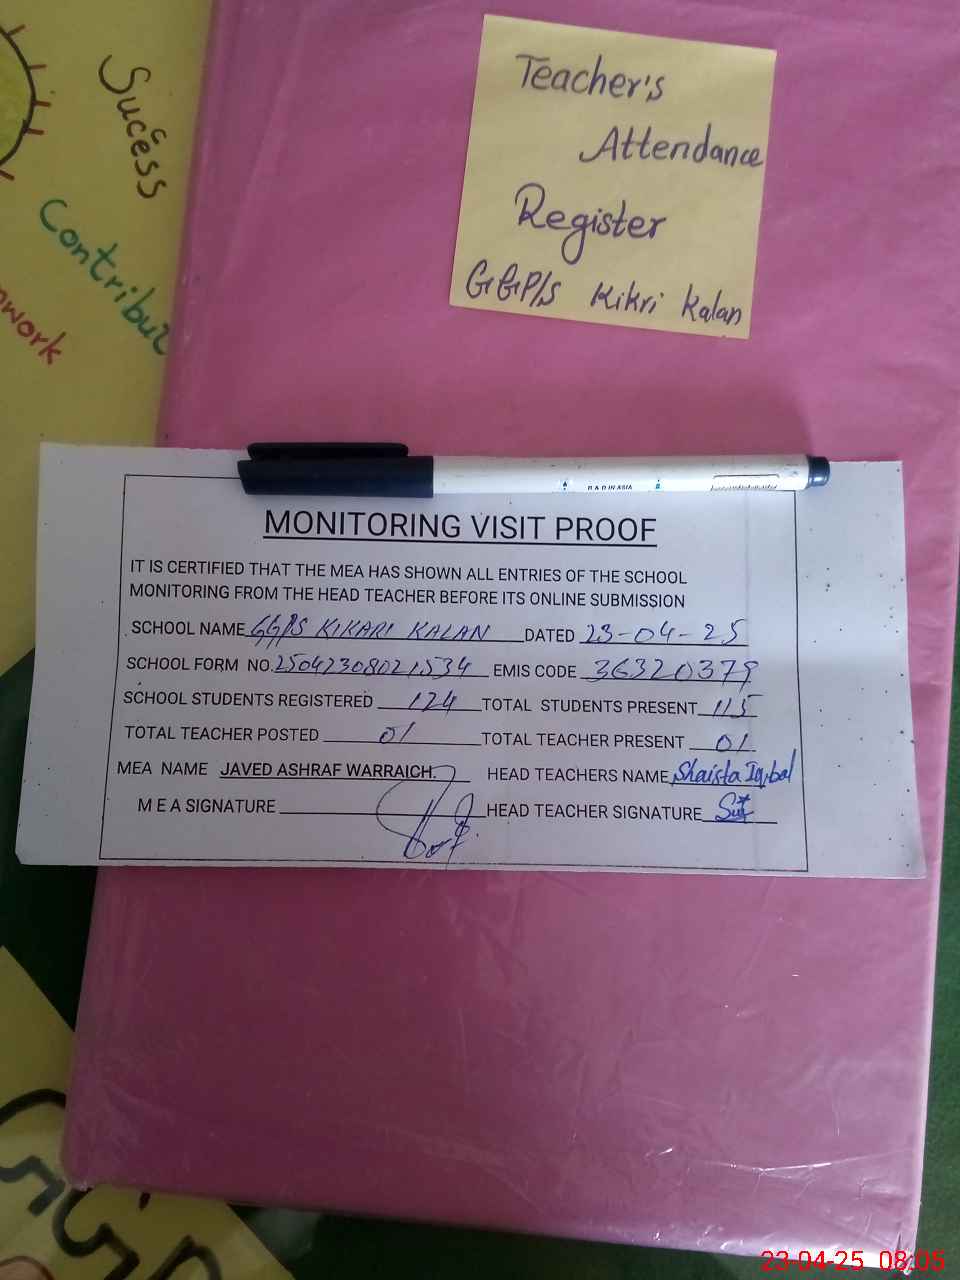 Sucess
Contribut
mwork
Teacher's
Attendance
Register
GGP/S Kikri Kalan
MONITORING VISIT PROOF
IT IS CERTIFIED THAT THE MEA HAS SHOWN ALL ENTRIES OF THE SCHOOL
MONITORING FROM THE HEAD TEACHER BEFORE ITS ONLINE SUBMISSION
SCHOOL NAME GGP/S KIKARI KALAN DATED 23-04-25
SCHOOL FORM NO. 25042308021534 EMIS CODE 36320379
SCHOOL STUDENTS REGISTERED 124 TOTAL STUDENTS PRESENT 115
TOTAL TEACHER POSTED 01 TOTAL TEACHER PRESENT 01
MEA NAME JAVED ASHRAF WARRAICH. HEAD TEACHERS NAME Shaista Iqbal
M E A SIGNATURE HEAD TEACHER SIGNATURE
23-04-25 08:05